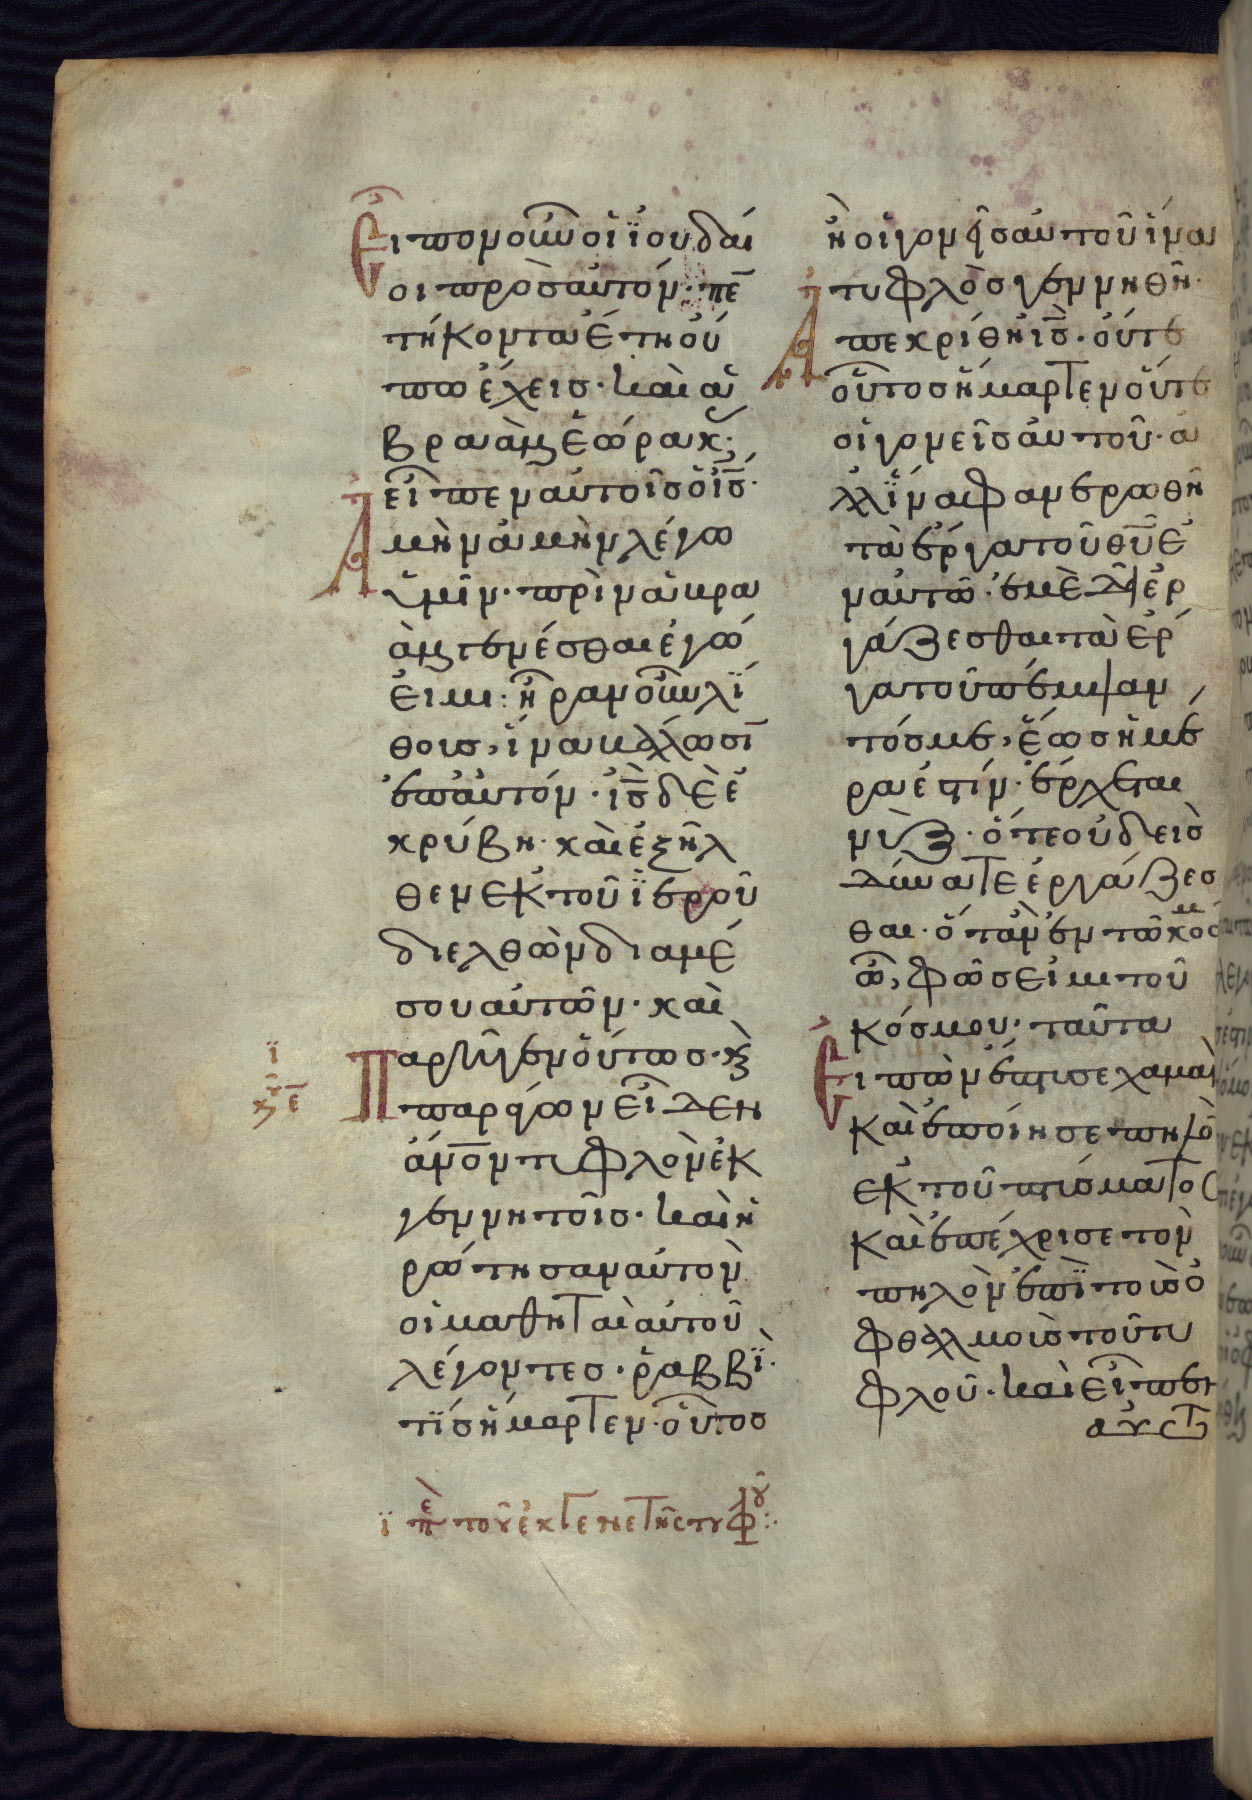 Εἶπον οὖν οἱ ἰουδαί
οι πρὸς αὐτόν· πε̄
τήκοντα ἔτη οὔ
πω ἔχεις· καὶ ἀ
βραὰμ ἑώρακ·
εἶπεν αὐτοῖς ὁ ις̄·
Ἀμὴν ἀμὴν λέγω
ὑμῖν· πρὶν ἀβρα
ὰμ γενέσθαι ἐγώ
εἰμι· ἦραν οὖν λί
θους, ἵνα βάλωσῑ
ἐπ αὐτόν· ις̄ δὲ ἐ
κρύβη· καὶ ἐξῆλ
θεν ἐκ τοῦ ἱεροῦ
διελθὼν διαμέ
σου αὐτῶν· καὶ
Παρῆγεν οὕτως· κ̀
παράγων εἶδεν
ἄν̄ον τυφλὸν ἐκ
γεννητῆς· καὶ ἠ
ρώτησαν αὐτὸν
οἱ μαθηταὶ αὐτοῦ
λέγοντες· ῥαββῒ·
τίς ἥμαρτεν· οὗτος
ἢ οἱ γονεῖς αὐτοῦ ἵνα
τυφλὸς γεννηθῆ·
Ἀπεκρίθη ις̄· οὔτε
οὗτος ἥμαρτεν οὔτε
οἱ γονεῖς αὐτοῦ· ἀ
λλ ἵνα φανερωθῆ
τὰ ἔργα τοῦ θῡ ἐ
ν αὐτῶ· ἐμὲ δεῖ ἐρ
γάζεσθαι τὰ ἔρ
γα τοῦ πέμψαν
τός με, ἕως ἡμέ
ρα ἐστίν· ἔρχεται
νὺξ· ὅτε οὐδεὶς
δύναται ἐργάζεσ
θαι· ὅταν ἐν τῶ κόσμ
ω ὦ, φῶς εἰμι τοῦ
κόσμου· ταῦτα
Εἰπὼν ἔπτυσε χαμαὶ
καὶ ἐποίησε πηλὸ
ἐκ τοῦ πτύσματος
καὶ ἐπέχρισε τὸν
πηλὸν ἐπὶ τοὺς ὀ
φθαλμοὺς τοῦ τυ
φλοῦ· καὶ εἶπεν
αὐτ